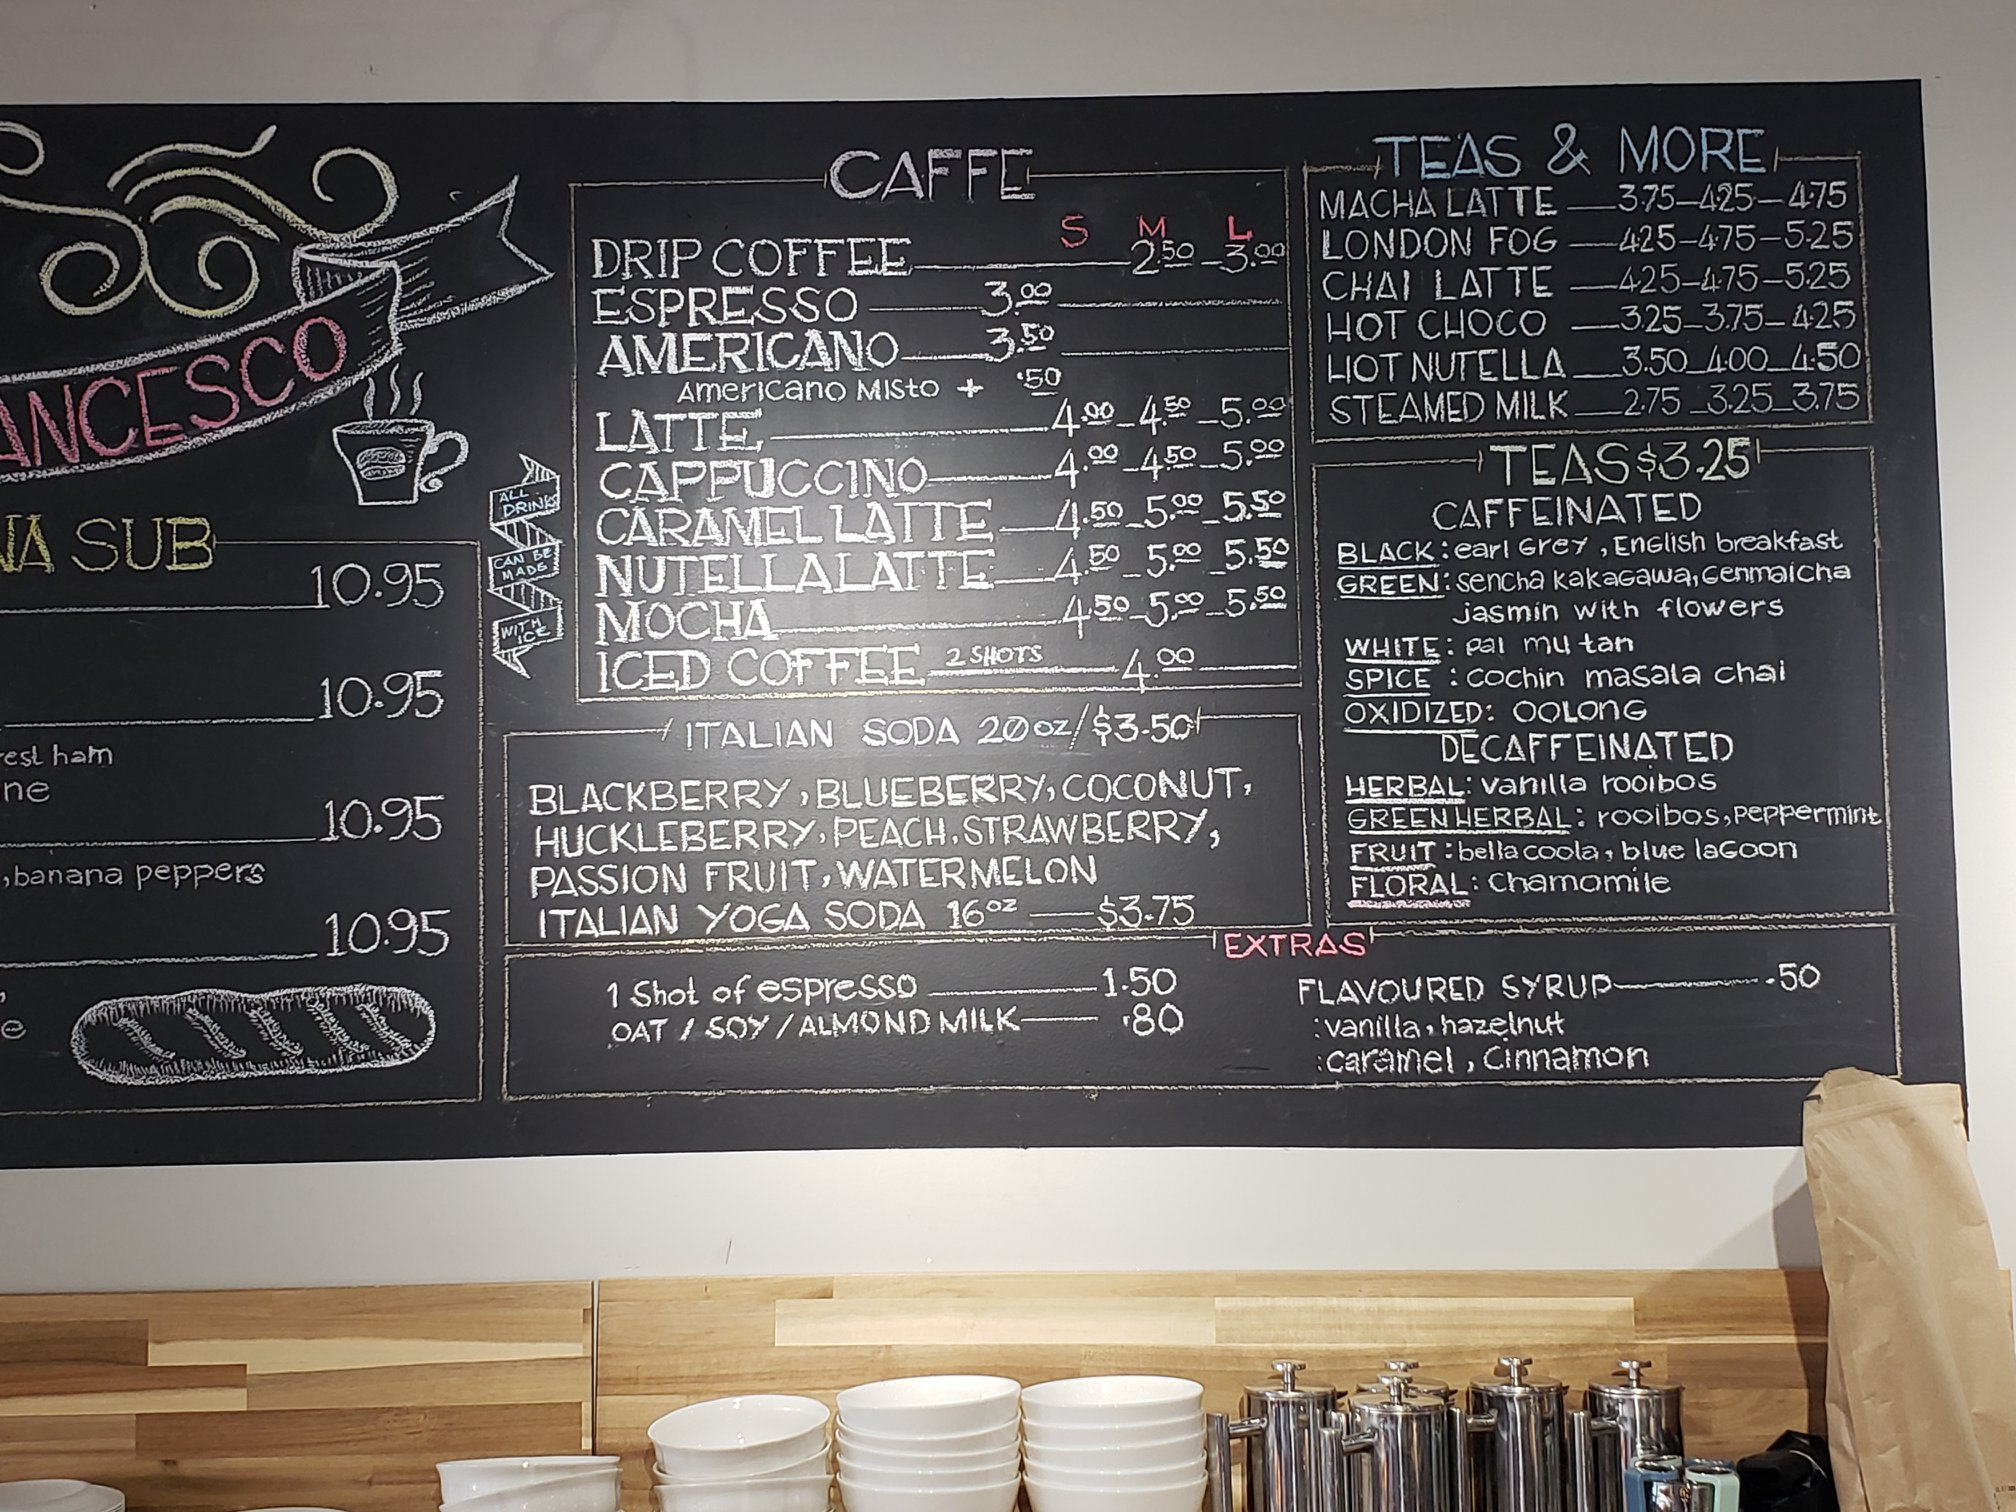 ANCESCO
NA SUB
10.95
10.95
rest ham
ne
10.95
, banana peppers
10.95
e
ALL
DRINKS
CAN BE
MADE
WITH
ICE
CAFFE
S M L
DRIP COFFEE 2.50 - 3.00
ESPRESSO 3.00
AMERICANO 3.50
Americano Misto + .50
LATTE 4.00 - 4.50 - 5.00
CAPPUCCINO 4.00 - 4.50 - 5.00
CARAMEL LATTE 4.50 - 5.00 - 5.50
NUTELLA LATTE 4.50 - 5.00 - 5.50
MOCHA 4.50 - 5.00 - 5.50
ICED COFFEE 2 SHOTS 4.00
ITALIAN SODA 20 oz/$3.50
BLACKBERRY, BLUEBERRY, COCONUT,
HUCKLEBERRY, PEACH, STRAWBERRY,
PASSION FRUIT, WATERMELON
ITALIAN YOGA SODA 16oz — $3.75
TEAS & MORE
MACHA LATTE — 3.75 — 4.25 — 4.75
LONDON FOG — 4.25 — 4.75 — 5.25
CHAI LATTE — 4.25 — 4.75 — 5.25
HOT CHOCO — 3.25 — 3.75 — 4.25
HOT NUTELLA — 3.50 — 4.00 — 4.50
STEAMED MILK — 2.75 — 3.25 — 3.75
TEAS $3.25
CAFFEINATED
BLACK: earl Grey, English breakfast
GREEN: sencha kakagawa, Genmaicha
jasmin with flowers
WHITE: pai mu tan
SPICE : cochin masala chai
OXIDIZED: OOLONG
DECAFFEINATED
HERBAL: vanilla rooibos
GREEN HERBAL: rooibos, peppermint
FRUIT: bella coola, blue lagoon
FLORAL: Chamomile
EXTRAS
1 Shot of espresso — 1.50
OAT / SOY / ALMOND MILK — .80
FLAVOURED SYRUP — .50
: vanilla, hazelnut
: caramel, cinnamon